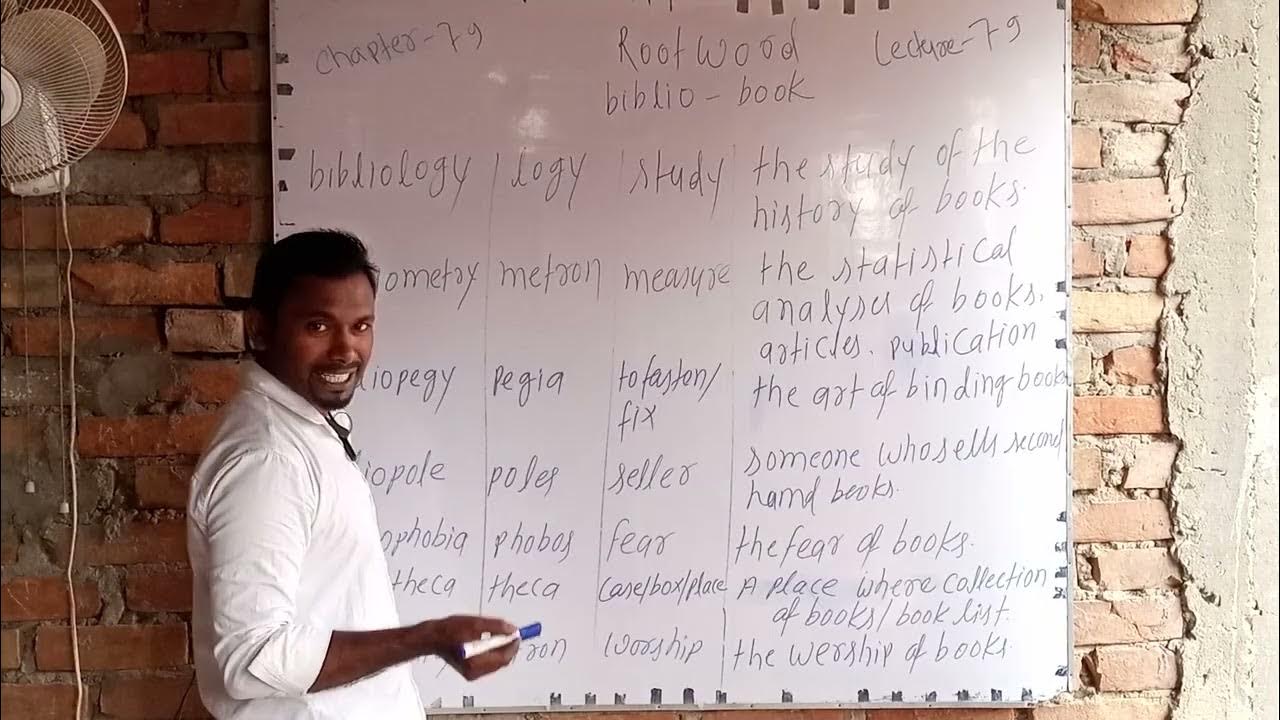 Chapter-79 Root wood Lecture-79
biblio - book
bibliology logy study the study of the
history of books.
ometry metron measure the statistical
analyses of books,
articles. publication
iopegy pegia to faston/ the art of binding books
fix
iopole poles seller someone who sells second
hamd books.
phobia phobos fear the fear of books.
theca theca case/box/place A place where collection
of books/book list.
ron worship the wership of books.